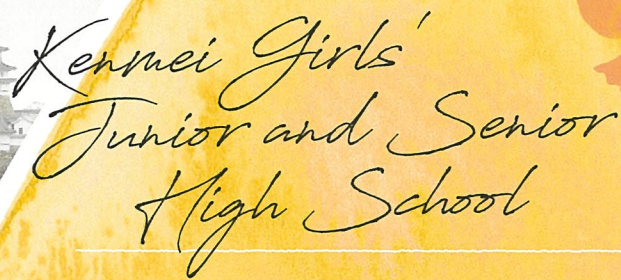 Kenmei Girls'
Junior and Senior
High School